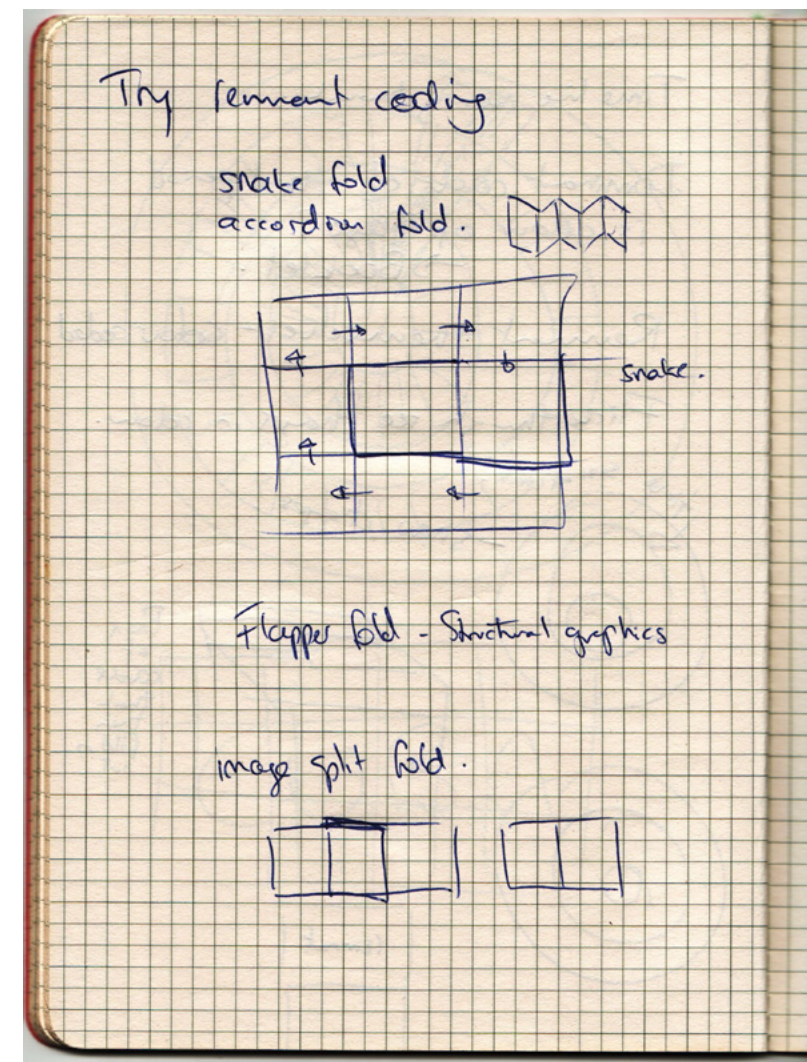 Try remnant coding
snake fold
accordion fold.
snake.
Flapper fold - Structural graphics
image split fold.